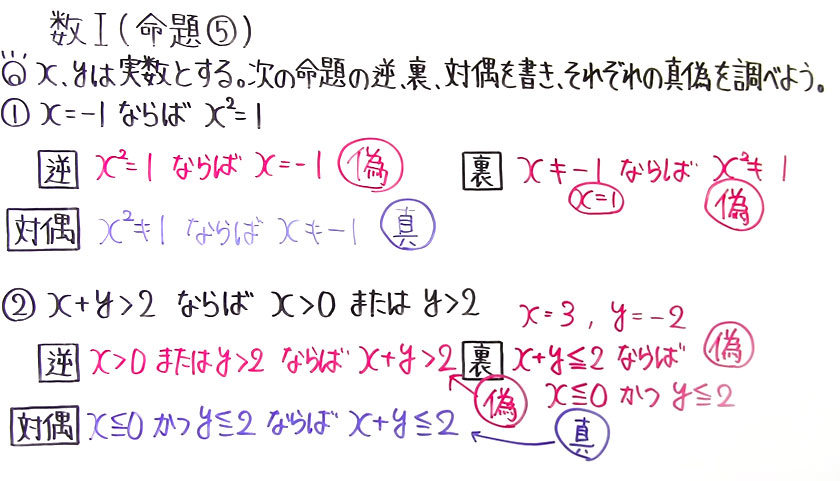 数Ⅰ(命題⑤)
◎ x、yは実数とする。次の命題の逆、裏、対偶を書き、それぞれの真偽を調べよう。
① x=-1 ならば x²=1
逆 x²=1 ならば x=-1 偽
裏 x≠-1 ならば x²≠1
x=1 偽
対偶 x²≠1 ならば x≠-1 真
② x+y>2 ならば x>0 または y>2
x=3, y=-2
逆 x>0 またはy>2 ならば x+y>2 偽
裏 x+y≦2 ならば 偽
x≦0 かつ y≦2
対偶 x≦0 かつ y≦2 ならば x+y≦2 真